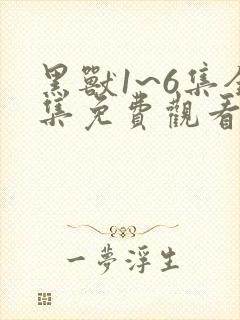 黑獸1~6集全
集免費觀看
一夢浮生